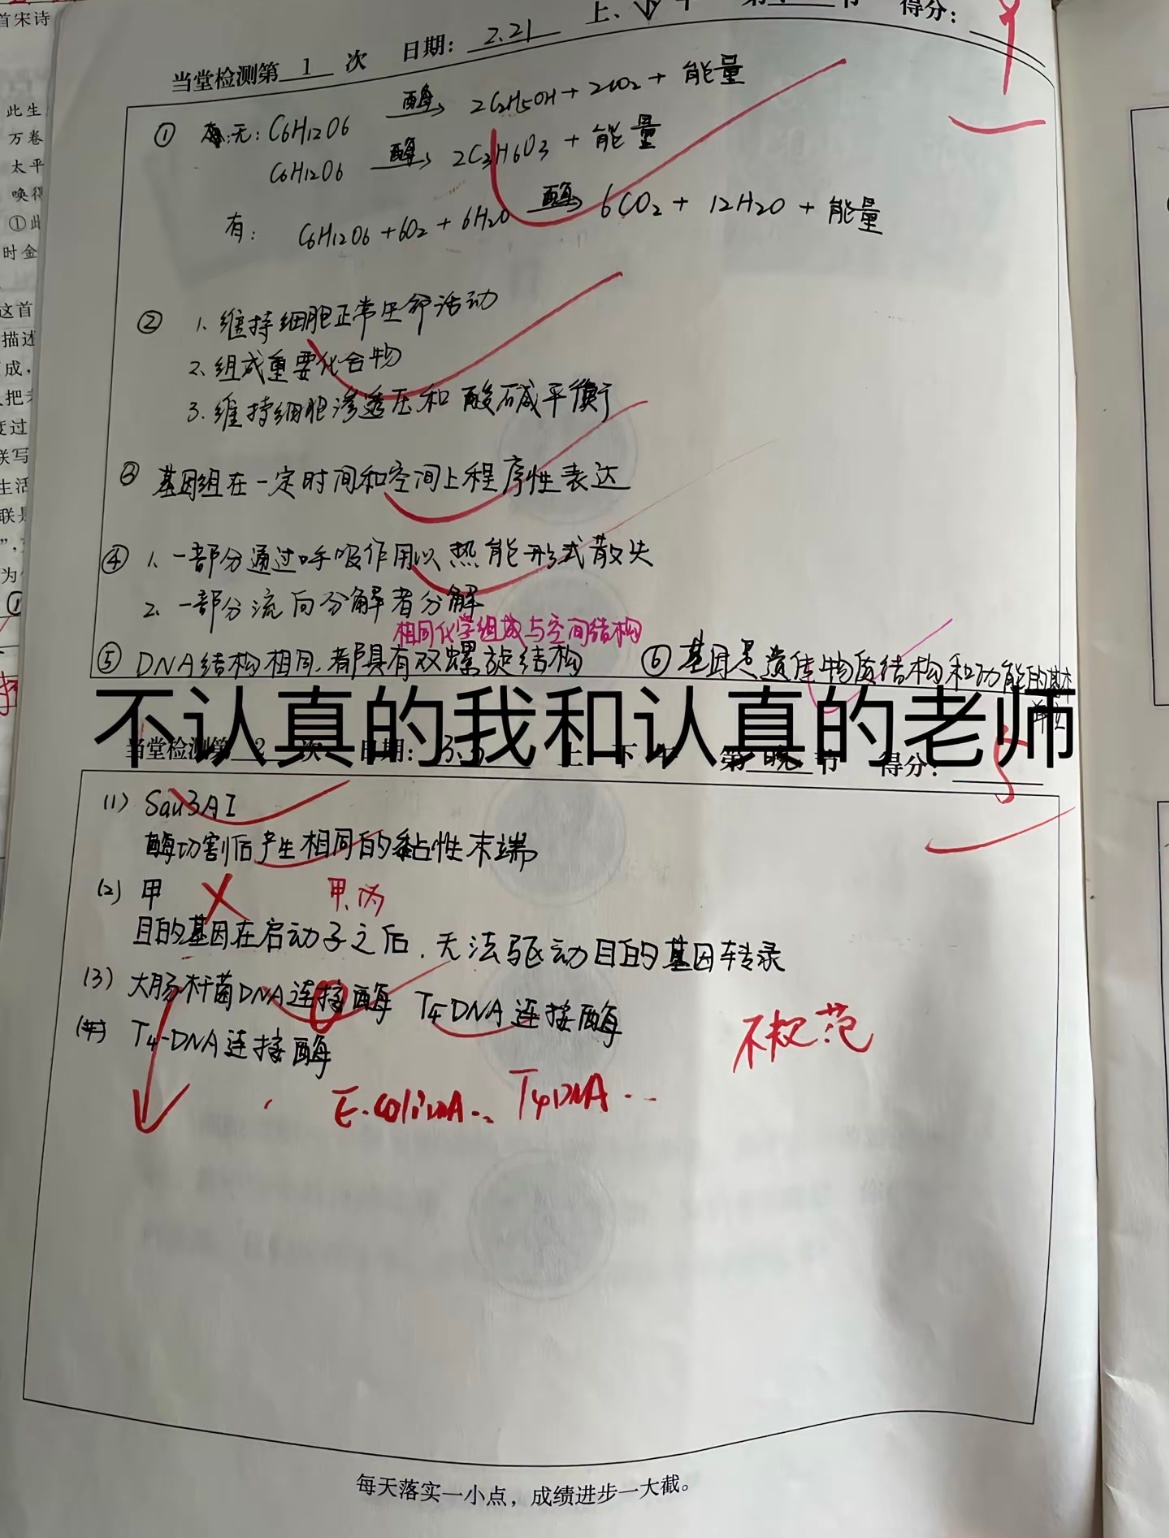 当堂检测第 1 次 日期: 2.21 上、下午 得分:
① 无: C6H12O6 酶→ 2C2H5OH + 2CO2 + 能量
C6H12O6 酶→ 2C3H6O3 + 能量
有: C6H12O6 + 6O2 + 6H2O 酶→ 6CO2 + 12H2O + 能量
② 1、维持细胞正常生命活动
2、组成重要化合物
3、维持细胞渗透压和酸碱平衡
③ 基因组在一定时间和空间上程序性表达
④ 1、一部分通过呼吸作用以热能形式散失
2、一部分流向分解者分解
相同化学组成与空间结构
⑤ DNA结构相同,都具有双螺旋结构 ⑥ 基因是遗传物质结构和功能的基本
单位
不认真的我和认真的老师
当堂检测第 2 次 日期: 3.3 上 下 午 第 晚 节 得分:
(1) Sau3AI
酶切割后产生相同的黏性末端
(2) 甲 甲、丙
目的基因在启动子之后,无法驱动目的基因转录
(3) 大肠杆菌DNA连接酶 T4DNA连接酶
T4-DNA连接酶
不规范
E.coliDNA.. T4DNA...
每天落实一小点,成绩进步一大截。
此生
万卷
太平
唤得
①此
时金
这首
描述
成,